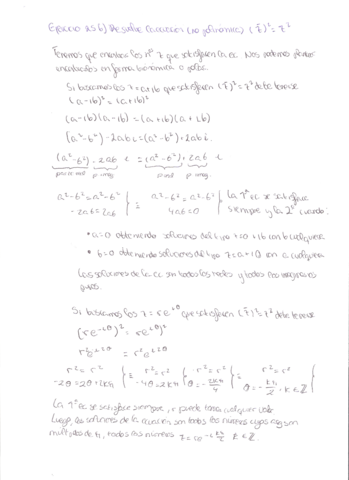 Ejercicio 25 b) Resuelve la ecuación (no polinómica) (z̄)² = z²
Tenemos que encontrar los nº z que satisfacen la ec. Nos podemos plantear
en forma binómica o polar.
Si buscamos los z = a+ib que satisfacen (z̄)² = z² debe tenerse
(a-ib)² = (a+ib)²
(a-ib)(a-ib) = (a+ib)(a+ib)
(a²-b²) - 2abi = (a²-b²) + 2abi.
(a²-b²) - 2ab i = (a²-b²) + 2ab i
a²-b² = a²-b² } a²-b² = a²-b² } La 1ª ec se satisface
-2ab = 2ab 4ab = 0 siempre y la 2ª cuando:
• a=0 obteniendo soluciones del tipo z=0+ib con b cualquiera
• b=0 obteniendo soluciones del tipo z=a+i0 con a cualquiera
Las soluciones de la ec son todos los reales y todos los imaginarios
puros.
Si buscamos los z = re^{iθ} que satisfacen (z̄)² = z² debe tenerse
(re^{-iθ})² = (re^{iθ})²
r²e^{-i2θ} = r²e^{i2θ}
r² = r² } r² = r² } r² = r² } r² = r²
-2θ = 2θ+2kπ -4θ = 2kπ θ = -2kπ/4 θ = -kπ/2, k∈ℤ
La 1ª ec se satisface siempre, r puede tomar cualquier valor
Luego, las soluciones de la ecuación son todos los números cuyos arg son
múltiplos de π, todos los números z = re^{-i kπ/2} k∈ℤ.